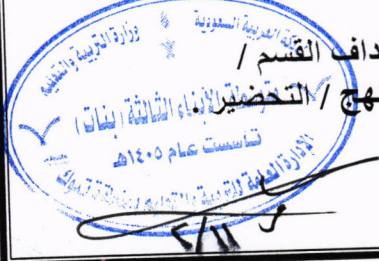 داف القسم /
هج / التحضير .
المملكة العربية السعودية
وزارة التربية والتعليم
روضة الأبناء الثالثة ( بنات )
تأسست عام ١٤٠٥هـ
الإدارة العامة للتربية والتعليم بمنطقة تبوك
٢/١١